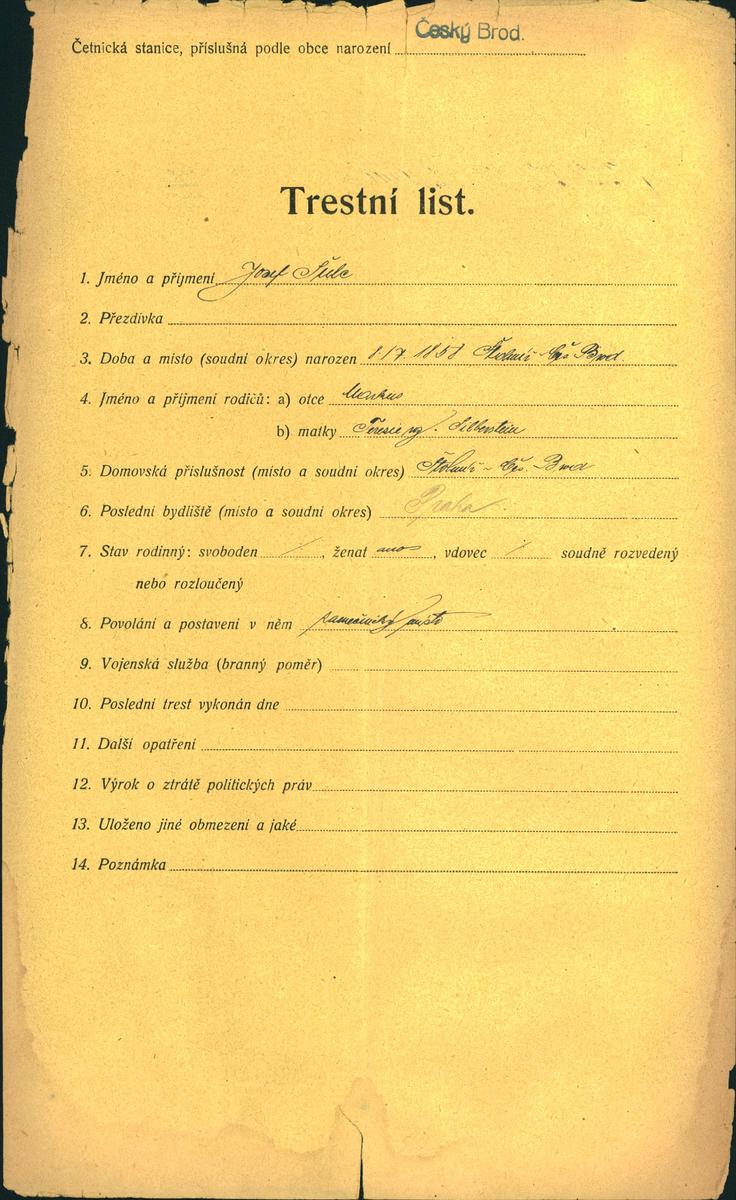 Český Brod.
Četnická stanice, příslušná podle obce narození
Trestní list.
1. Jméno a příjmení Josef Šulc
2. Přezdívka
3. Doba a místo (soudní okres) narozen 1858 Brod
4. Jméno a příjmení rodičů: a) otce Markus
b) matky Teresie Silberstein
5. Domovská příslušnost (místo a soudní okres) Brod
6. Poslední bydliště (místo a soudní okres) Praha
7. Stav rodinný: svoboden /, ženat ano, vdovec / soudně rozvedený
nebo rozloučený
8. Povolání a postavení v něm
9. Vojenská služba (branný poměr)
10. Poslední trest vykonán dne
11. Další opatření
12. Výrok o ztrátě politických práv
13. Uloženo jiné obmezení a jaké
14. Poznámka